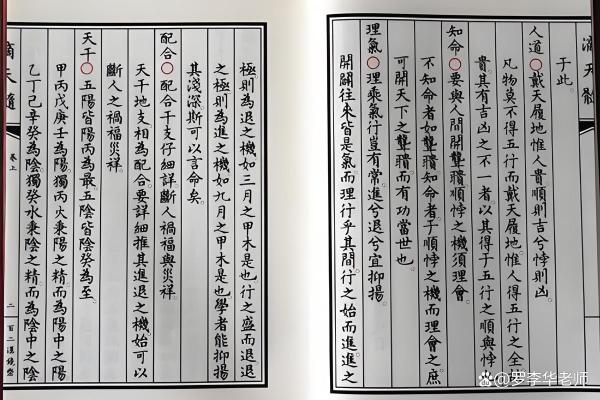 滴天髓
于此。
人道○戴天履地惟人貴順則吉兮悖則凶
凡物莫不得五行而戴天履地。惟人得五行之全
貴。其有吉凶之不一者。以其得于五行之順與悖
知命○要與人間開聾聵順悖之機須理會
不知命者如聾聵。知命者于順悖之機而理會之。庶
可開天下之聾聵而有功當世也
理氣○理乘氣行豈有常進兮退兮宜抑揚
開闢往來皆是氣。而理行乎其間。行之始而進進之
極則為退之機如三月之甲木是也。行之盛而退退
之極則為進之機如九月之甲木是也。學者能抑揚
其淺深斯可以言命矣。
配合○配合干支仔細詳斷人禍福與災祥
天干地支相為配合要詳細推其進退之機始可以
斷人之禍福災祥。
天干○五陽皆陽丙為最五陰皆陰癸為至
甲丙戊庚壬為陽。獨丙火秉陽之精而為陽中之陽
乙丁己辛癸為陰。獨癸水秉陰之精而為陰中之陰
滴天髓 卷上 二 百二漢鏡齋
@罗李华老师